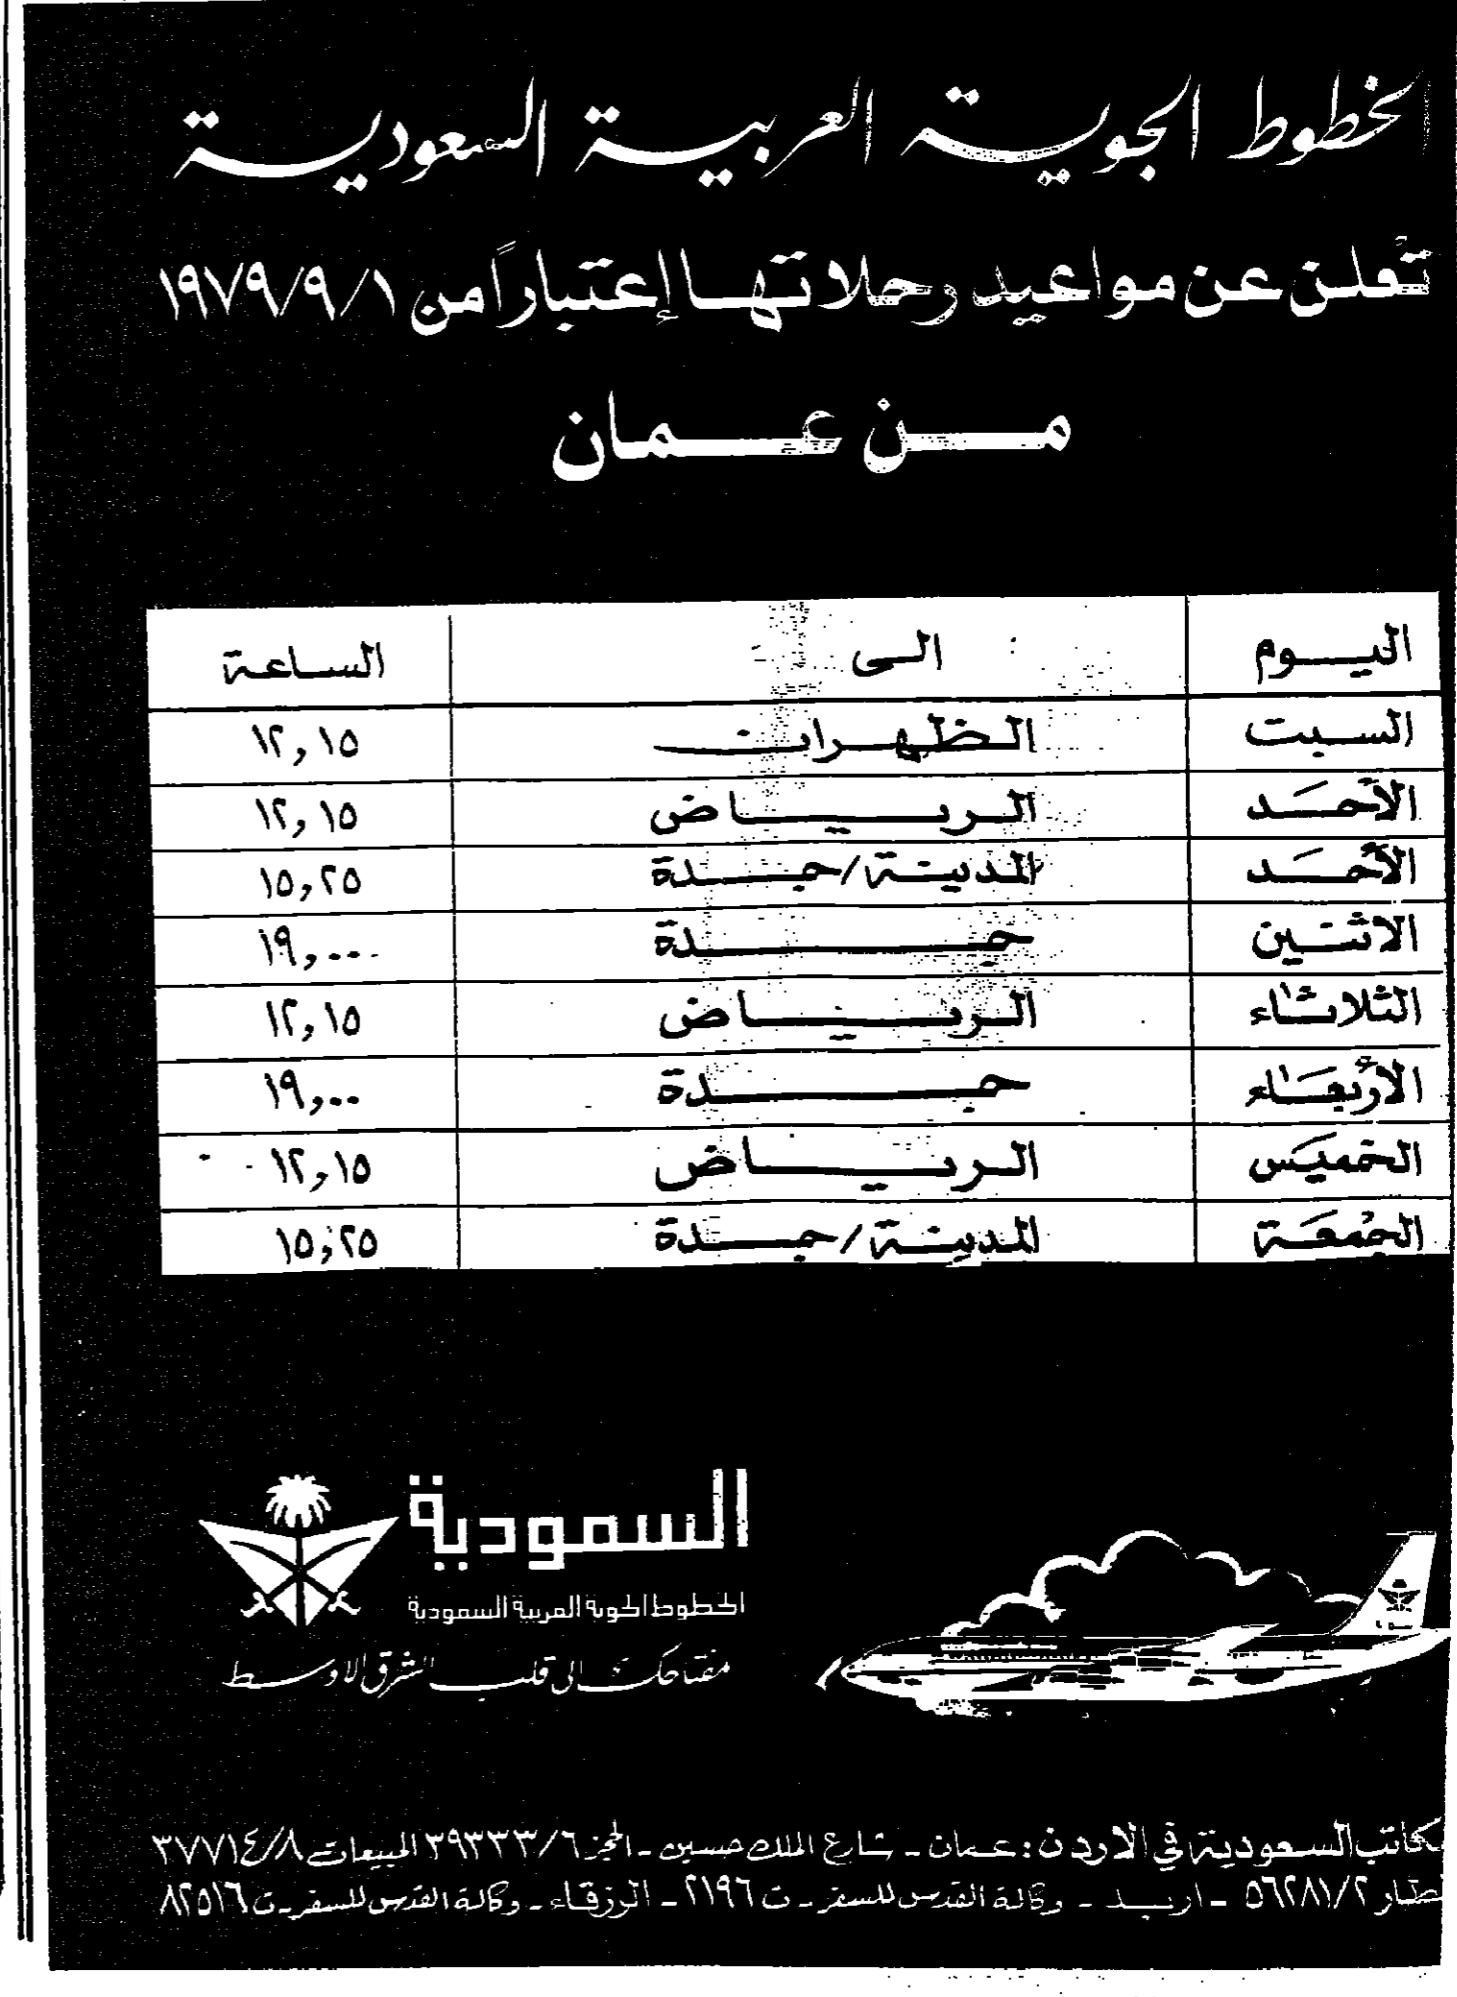 الخطوط الجوية العربية السعودية
تعلن عن مواعيد رحلاتها إعتباراً من ١٩٧٩/٩/١
من عمان
اليوم الى الساعة
السبت الظهران ١٢,١٥
الأحد الرياض ١٢,١٥
الأحد المدينة/جدة ١٥,٢٥
الاثنين جدة ١٩,٠٠
الثلاثاء الرياض ١٢,١٥
الأربعاء جدة ١٩,٠٠
الخميس الرياض ١٢,١٥
الجمعة المدينة/جدة ١٥,٢٥
السعودية
الخطوط الجوية العربية السعودية
مفتاحك الى قلب الشرق الاوسط
مكاتب السعودية في الاردن: عمان - شارع الملك حسين - الحجز ٣٩٣٣٣/٦ المبيعات ٣٧٧١٤/٨
المطار ٥٦٢٨١/٢ - اربد - وكالة القدس للسفر - ت ٢١٩٦ - الزرقاء - وكالة القدس للسفر - ت ٨٢٥١٦